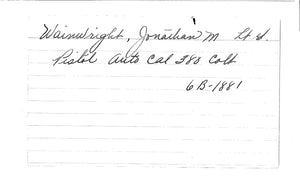 Wainwright, Jonathan M Lt G.
Pistol Auto Cal 380 Colt
6B-1881